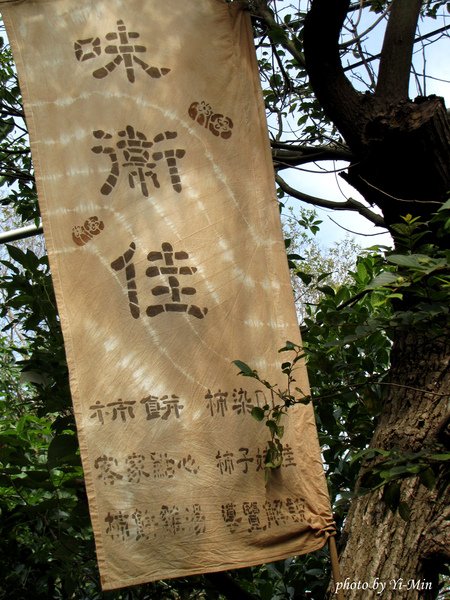 味衛佳
柿餅 柿染DI
客家點心 柿子娃娃
柿餅雞湯 導覽解說
photo by Yi-Min